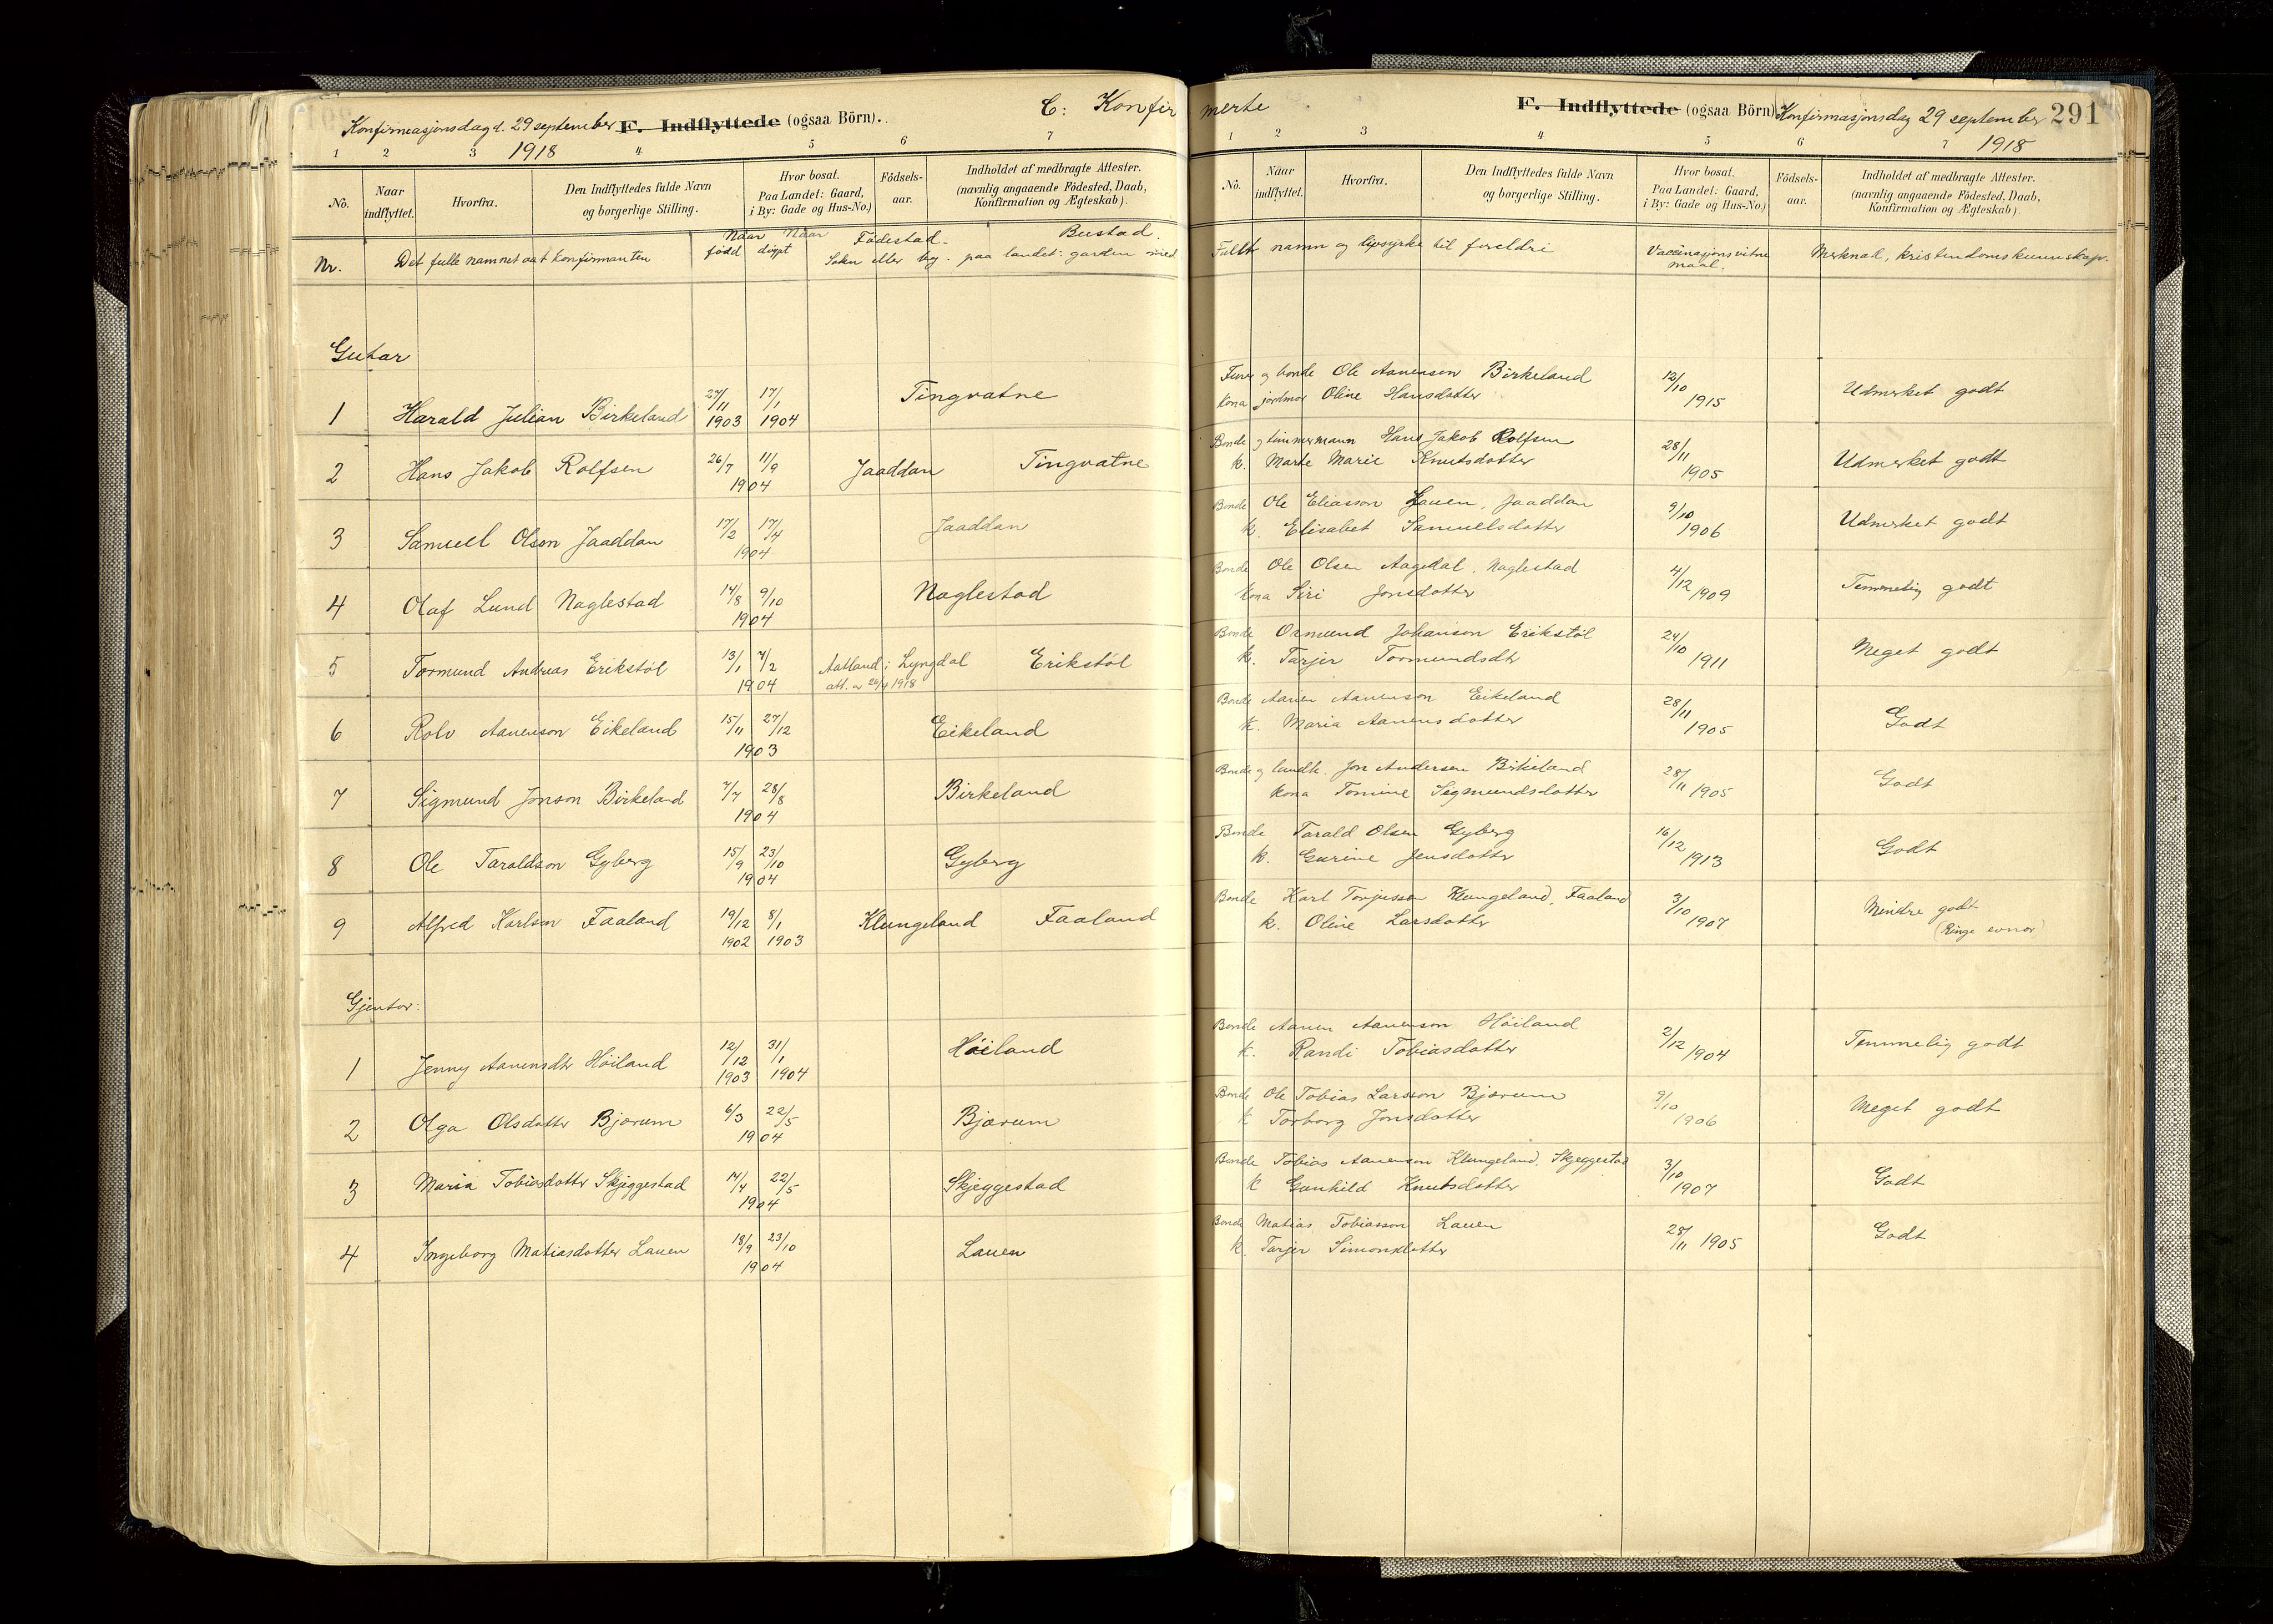 C: Konfirmerte
Konfirmasjonsdag d. 29 september F. Indflyttede (ogsaa Börn).
1918
1 2 3 4 5 6 7
No. Naar indflyttet. Hvorfra. Den Indflyttedes fulde Navn og borgerlige Stilling. Hvor bosat. Paa Landet: Gaard, i By: Gade og Hus-No.) Fødsels-aar. Indholdet af medbragte Attester. (navnlig angaaende Fødested, Daab, Konfirmation og Ægteskab).
Nr. Det fulle namnet aat konfirmanten Naar född Naar döypt Födestad. Sokn eller by. Bustad. paa landet: garden
Gutar
1 Harald Julian Birkeland 27/11 1903 17/1 1904 Tingvatne
2 Hans Jakob Rolfsen 26/7 11/9 1904 Jaaddan Tingvatne
3 Samuel Olson Jaaddan 17/2 17/4 1904 Jaaddan
4 Olaf Lund Naglestad 14/8 9/10 1904 Naglestad
5 Tormund Andreas Erikstöl 13/1 7/2 1904 Aatland i Lyngdal Erikstöl
att. av 26/4 1918
6 Rolv Aanenson Eikeland 15/11 27/12 1903 Eikeland
7 Sigmund Jonson Birkeland 7/7 28/8 1904 Birkeland
8 Ole Taraldson Gyberg 15/9 23/10 1904 Gyberg
9 Alfred Karlson Faaland 19/12 1902 8/1 1903 Klungeland Faaland
Gjentor:
1 Jenny Aanensdtr Höiland 12/12 1903 31/1 1904 Höiland
2 Olga Olsdotter Bjærum 6/3 22/5 1904 Bjærum
3 Maria Tobiasdotter Skjeggestad 14/4 22/5 1904 Skjeggestad
4 Ingeborg Matiasdotter Lauen 18/9 23/10 1904 Lauen
F. Indflyttede (ogsaa Börn) Konfirmasjonsdag 29 september 291
1918
1 2 3 4 5 6 7
No. Naar indflyttet. Hvorfra. Den Indflyttedes fulde Navn og borgerlige Stilling. Hvor bosat. Paa Landet: Gaard, i By: Gade og Hus-No.) Fødsels-aar. Indholdet af medbragte Attester. (navnlig angaaende Fødested, Daab, Konfirmation og Ægteskab).
Fullt namn og livsyrke til foreldri Vaccinasjonsvitnemaal. Merknad, kristendomskunnskap.
og bonde Ole Aanenson Birkeland 12/10 1915 Udmerket godt
kona jordmor Oline Hansdotter
Bonde og timmermann Hans Jakob Rolfsen 28/11 1905 Udmerket godt
k. Marte Marie Knutsdotter
Bonde Ole Eliasson Lauen, Jaaddan 9/10 1906 Udmerket godt
k. Elisabet Samuelsdotter
Bonde Ole Olsen Aagedal, Naglestad 4/12 1909 Temmelig godt
kona Siri Jonsdotter
Bonde Ormund Johanson Erikstöl 24/10 1911 Meget godt
k. Tarjer Tormundsdtr
Bonde Aanen Aanenson Eikeland 28/11 1905 Godt
k. Maria Aanensdotter
Bonde og landh. Jon Andersen Birkeland 28/11 1905 Godt
kona Tomine Sigmundsdotter
Bonde Tarald Olsen Gyberg 16/12 1913 Godt
k. Gurine Jensdotter
Bonde Karl Torjussen Klungeland, Faaland 3/10 1907 Mindre godt
k. Oline Larsdotter (Ringe evnor)
Bonde Aanen Aanenson Höiland 2/12 1904 Temmelig godt
k. Randi Tobiasdotter
Bonde Ole Tobias Larsson Bjærum 9/10 1906 Meget godt
k Torborg Jonsdotter
Bonde Tobias Aanenson Klungeland, Skjeggestad 3/10 1907 Godt
k Gunhild Knutsdotter
Bonde Matias Tobiasson Lauen 28/11 1905 Godt
k. Tarjer Simonsdotter